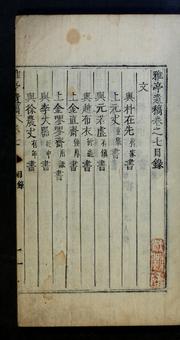 雅亭遺稿卷之七目錄
文
與朴在先齊家書
上元丈重擧書
與元若虛有鎭書
與趙布衣衍龜書
上金直齋鍾厚書
上金𡼲𡼲齋用謙書
與李大
與徐農丈有年書
雅亭遺稿卷七
目錄
一